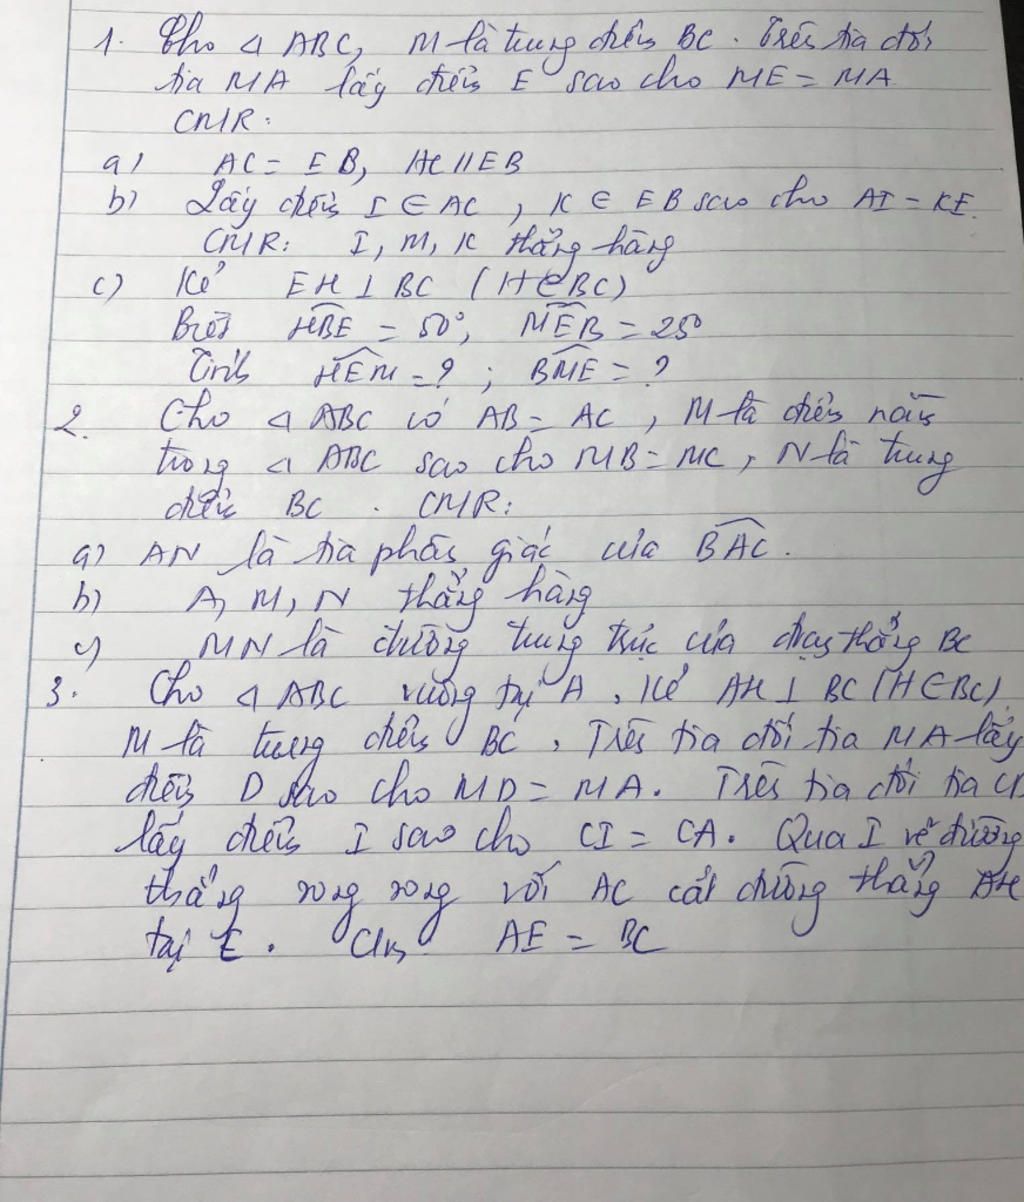 1. Cho ◁ ABC, M là trung điểm BC. Trên tia đối
tia MA lấy điểm E sao cho ME = MA
CMR:
a) AC = EB, AC // EB
b) Lấy điểm I ∈ AC, K ∈ EB sao cho AI = KE.
CMR: I, M, K thẳng hàng
c) Kẻ EH ⊥ BC (H ∈ BC)
Biết \widehat{HBE} = 50°, \widehat{MEB} = 25°
Tính \widehat{HEM} = ? ; \widehat{BME} = ?
2. Cho ◁ ABC có AB = AC, M là điểm nằm
trong ◁ ABC sao cho MB = MC, N là trung
điểm BC. CMR:
a) AN là tia phân giác của \widehat{BAC}.
b) A, M, N thẳng hàng
c) MN là đường trung trực của đoạn thẳng BC
3. Cho ◁ ABC vuông tại A, Kẻ AH ⊥ BC (H ∈ BC)
M là trung điểm BC, Trên tia đối tia MA lấy
điểm D sao cho MD = MA. Trên tia đối tia CD
lấy điểm I sao cho CI = CA. Qua I vẽ đường
thẳng song song với AC cắt đường thẳng AH
tại E. Cm AE = BC